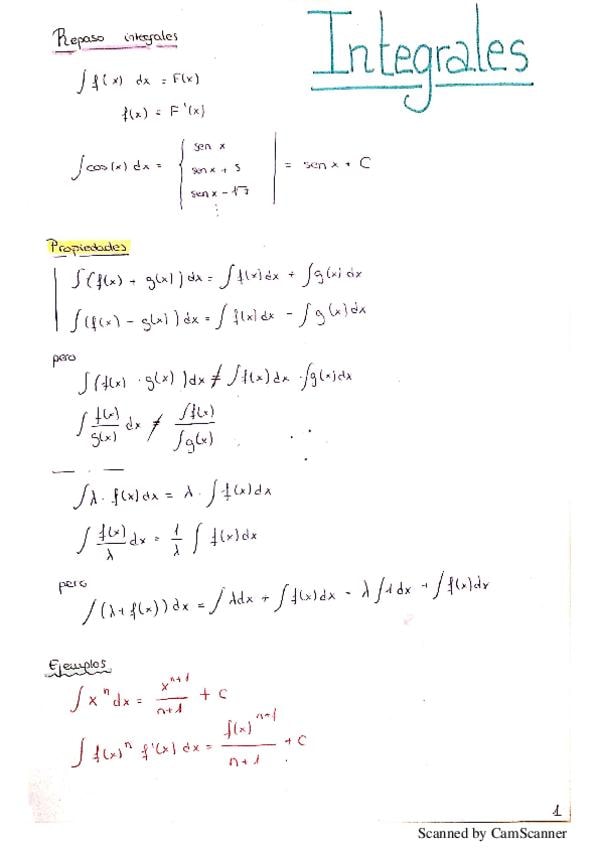 Integrales
Repaso integrales
∫ f(x) dx = F(x)
f(x) = F'(x)
∫ cos(x) dx = { sen x
sen x + 5
sen x - 17
⋮ | = sen x + C
Propiedades
∫(f(x) + g(x)) dx = ∫ f(x) dx + ∫ g(x) dx
∫(f(x) - g(x)) dx = ∫ f(x) dx - ∫ g(x) dx
pero
∫(f(x) · g(x)) dx ≠ ∫ f(x) dx · ∫ g(x) dx
∫ f(x)/g(x) dx ≠ ∫f(x)/∫g(x)
∫ λ · f(x) dx = λ · ∫ f(x) dx
∫ f(x)/λ dx = 1/λ ∫ f(x) dx
pero
∫(λ + f(x)) dx = ∫ λ dx + ∫ f(x) dx = λ ∫ 1 dx + ∫ f(x) dx
Ejemplos
∫ x^n dx = x^(n+1)/(n+1) + C
∫ f(x)^n f'(x) dx = f(x)^(n+1)/(n+1) + C
1
Scanned by CamScanner